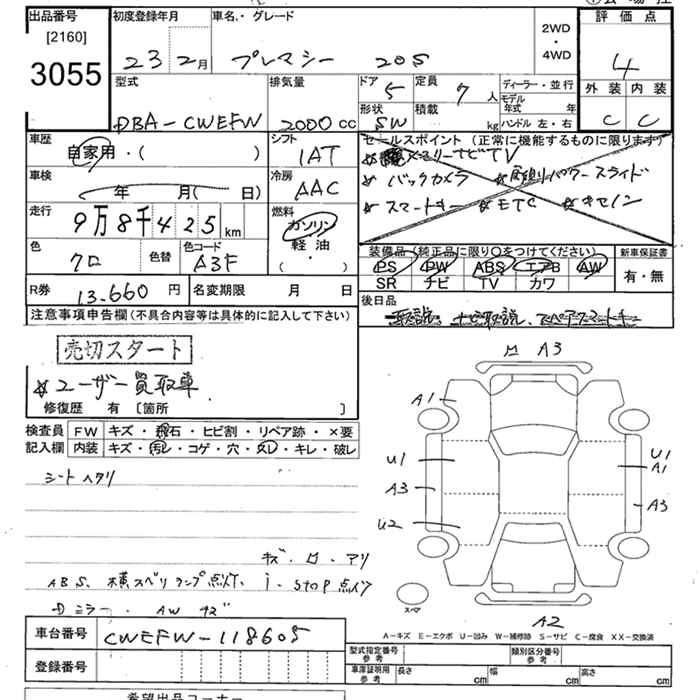 出品番号
[2160]
3055
初度登録年月
23 2月
車名・グレード
プレマシー 20S
2WD
・
4WD
評価点
4
外装 内装
C C
型式
DBA-CWEFW
排気量
2000cc
ドア
5
定員
7人
形状
SW
積載
kg
ディーラー・並行
モデル年式 年
ハンドル 左・右
車歴
自家用・( )
シフト
IAT
車検
年 月( 日)
冷房
AAC
走行
9万8千425km
燃料
ガソリン
軽油・
( )
色
クロ
色替
色コード
A3F
R券
13.660円
名変期限 月 日
セールスポイント(正常に機能するものに限ります)
メモリーナビTV
バックカメラ 両側パワースライド
スマートキー ETC キセノン
装備品(純正品に限り○をつけてください)
PS PW ABS エアB AW
SR ナビ TV カワ
新車保証書
有・無
後日品
取説、ナビ取説、スペアスマートキー
注意事項申告欄(不具合内容等は具体的に記入して下さい)
売切スタート
ユーザー買取車
修復歴 有 [箇所 ]
検査員記入欄
FW キズ・飛石・ヒビ割・リペア跡・×要
内装 キズ・汚レ・コゲ・穴・スレ・キレ・破レ
シートヘタリ
キズ・ロ・アリ
ABS、横スベリランプ点灯、i-stop点灯
Dミラー・AWキズ
ロ A3
A1
U1
U1
A1
A3
A3
U2
スペア
A2
A-キズ E-エクボ U-凹み W-補修跡 S-サビ C-腐食 XX-交換済
車台番号
CWEFW-118605
登録番号
型式指定番号
参考
類別区分番号
参考
車庫証明用
参考
長さ cm
幅 cm
高さ cm
希望出品コーナー